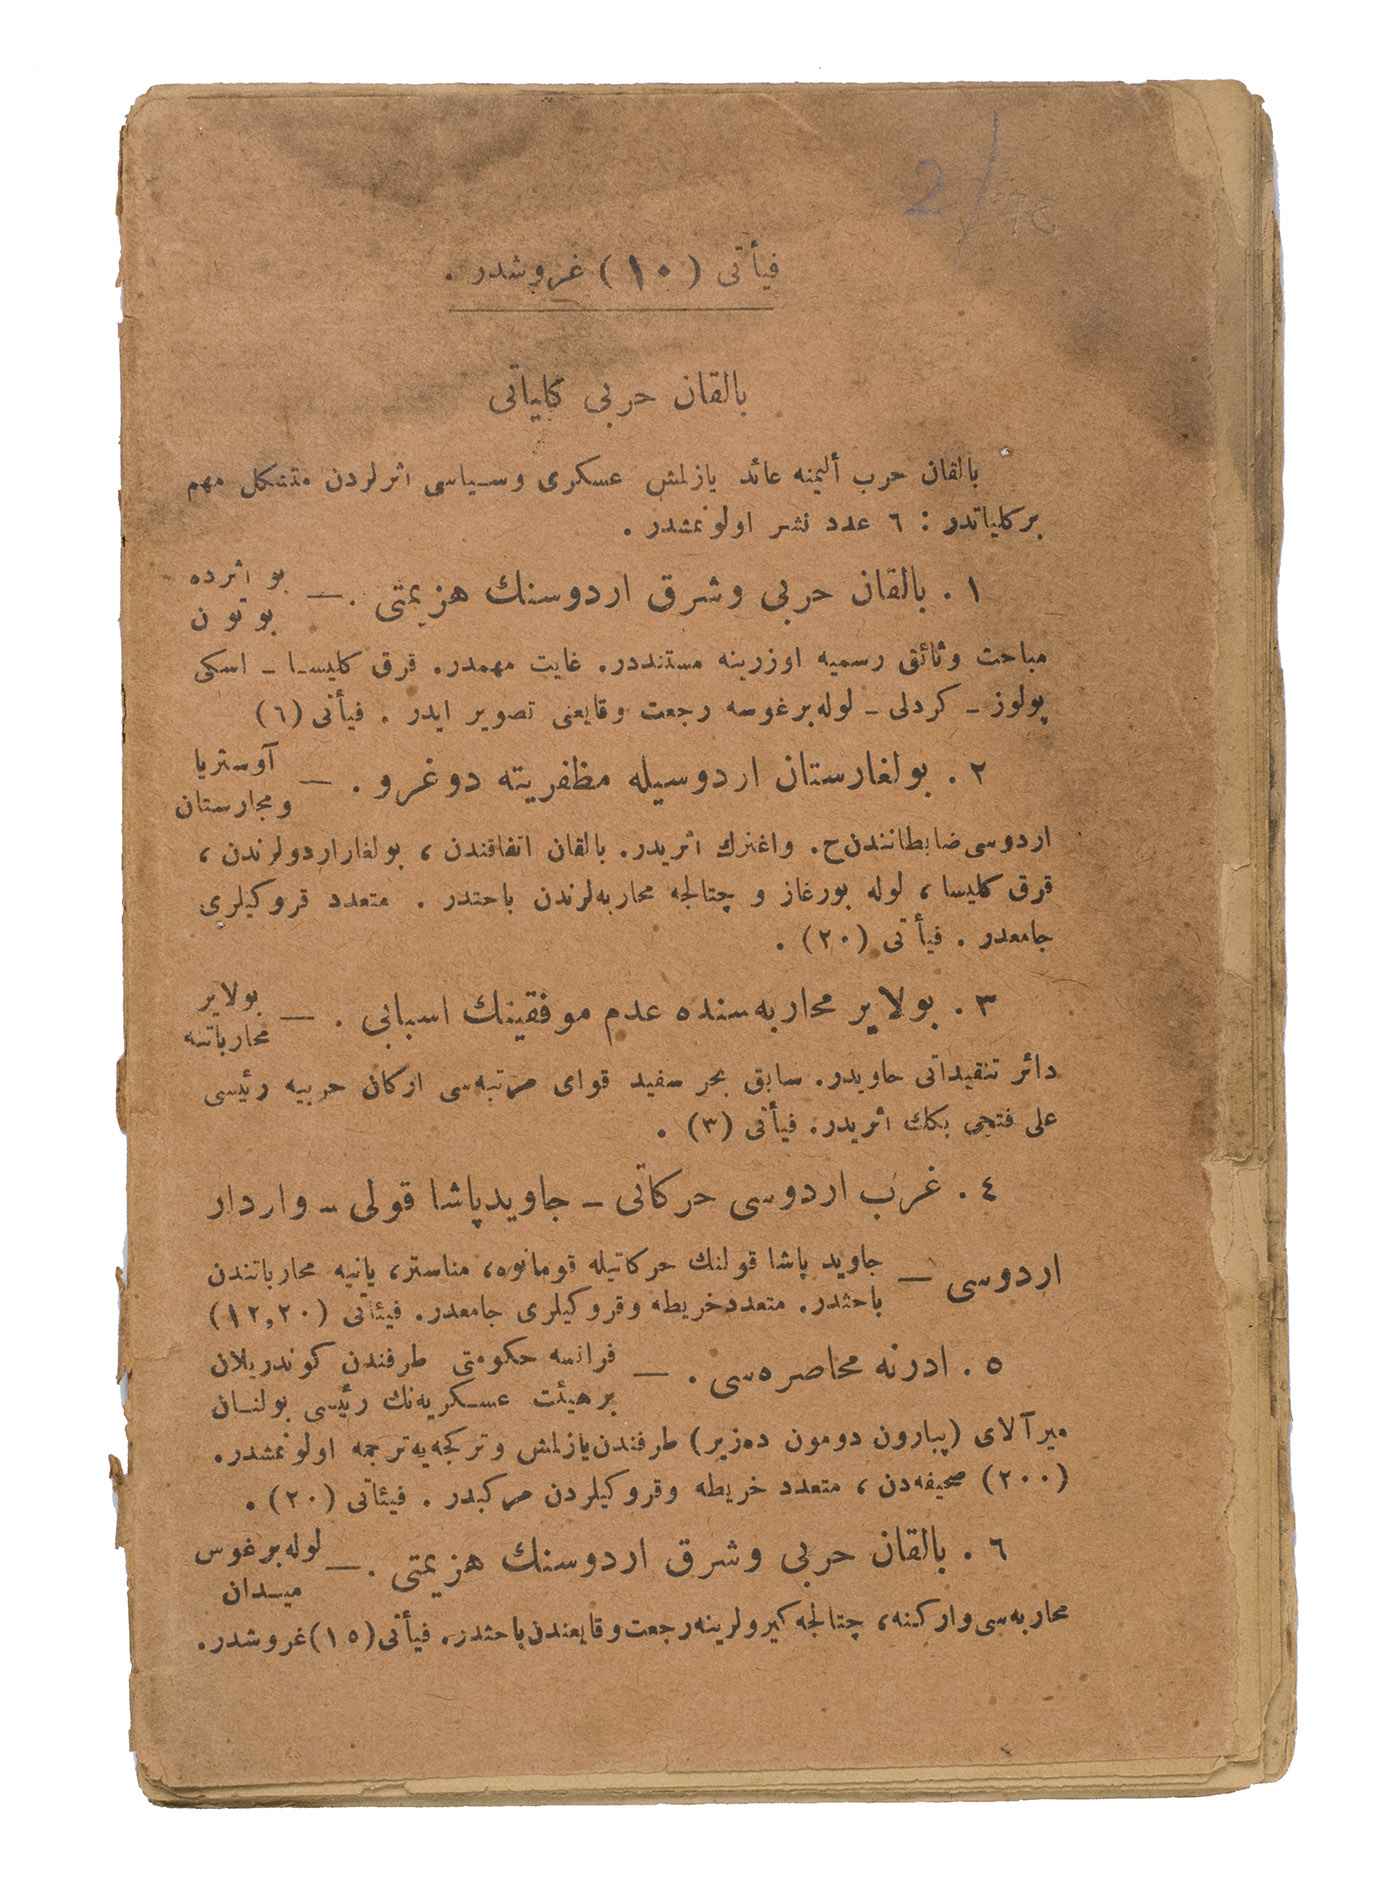 2/
فيأتى (١٠) غروشدر .
بالقان حربى كلياتى
بالقان حرب أليمنه عائد يازلمش عسكرى وسياسى اثرلردن متشكل مهم
بركلياتدر : ٦ عدد نشر اولونمشدر .
١ . بالقان حربى وشرق اردوسنك هزيمتى . — بو اثرده
بوتون
مباحث وثائق رسميه اوزرينه مستنددر. غايت مهمدر. قرق كليسا ـ اسكى
پولوز ـ كردلى ـ لوله برغوسه رجعت وقايعنى تصوير ايدر . فيأتى (٦)
٢ . بولغارستان اردوسيله مظفريته دوغرو . — آوستريا
ومجارستان
اردوسى ضابطانندن ح. واغنرك اثريدر. بالقان اتفاقندن ، بولغاراردولرندن ،
قرق كليسا ، لوله بورغاز و چتالجه محاربه‌لرندن باحثدر . متعدد قروكيلرى
جامعدر . فيأتى (٢٠) .
٣ . بولاير محاربه‌سنده عدم موفقينك اسبابى . — بولاير
محارباتنه
دائر تنقيداتى حاويدر. سابق بحر سفيد قواى مرتبه‌سى اركان حربيه رئيسى
على فتحى بكك اثريدر. فيأتى (٣) .
٤ . غرب اردوسى حركاتى ـ جاويدپاشا قولى ـ واردار
اردوسى — جاويد پاشا قولنك حركاتيله قومانوه، مناستر، يانيه محارباتندن
باحثدر. متعددخريطه وقروكيلرى جامعدر. فيئاتى (١٢,٢٠)
٥ . ادرنه محاصره‌سى . — فرانسه حكومتى طرفندن كوندريلان
برهيئت عسكريه‌نك رئيسى بولنان
ميرآلاى (پيارون دومون ده‌زير) طرفندن‌يازلمش وتركجه‌يه‌ترجمه اولونمشدر.
(٢٠٠) صحيفه‌دن ، متعدد خريطه وقروكيلردن مركبدر . فيئاتى (٢٠) .
٦ . بالقان حربى وشرق اردوسنك هزيمتى . — لوله‌برغوس
ميدان
محاربه‌سى واركنه، چتالجه كيرولرينه‌رجعت‌وقايعندن‌باحثدر. فيأتى(١٥)غروشدر.